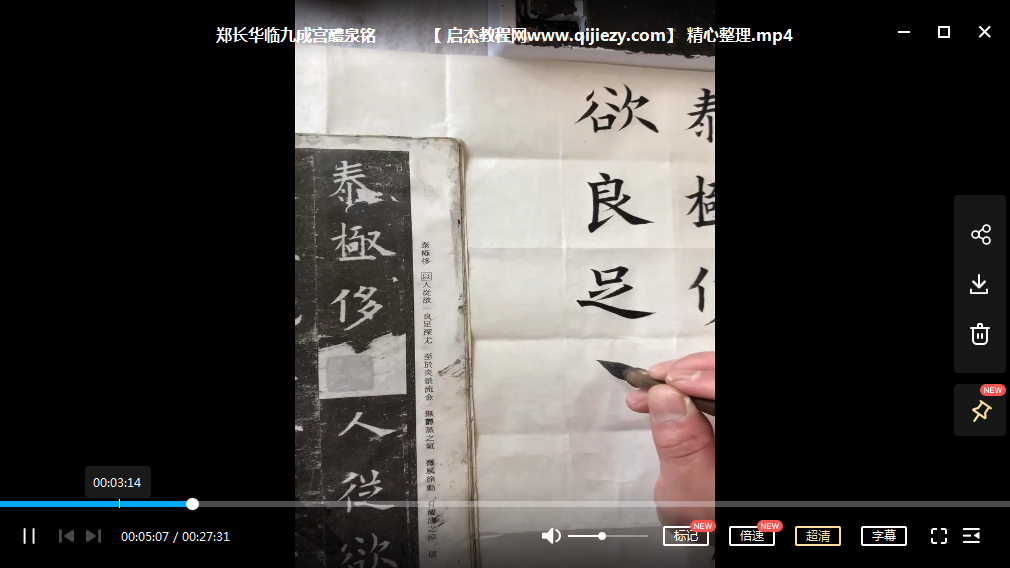 郑长华临九成宫醴泉铭 【 启杰教程网www.qijiezy.com】 精心整理.mp4
泰
極
欲
良
足
泰極侈
人從欲
泰極侈 以人從欲 良足深尤 至於炎景流金 無鬱蒸之氣 微風徐動 有淒清之涼 信
NEW
00:03:14
00:05:07 / 00:27:31
标记
NEW
倍速
NEW
超清
字幕